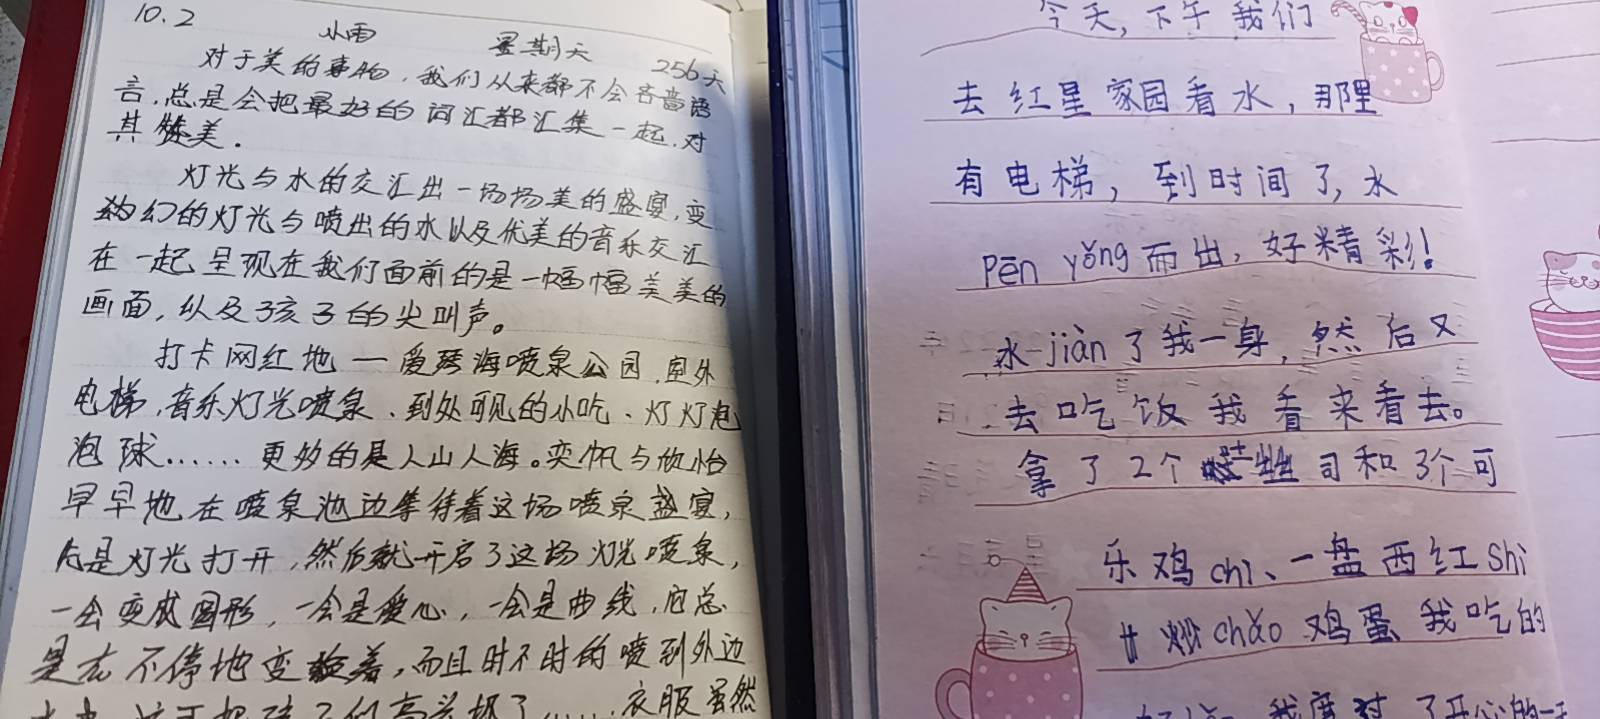 10.2 小雨 星期天 256天
对于美的事物，我们从来都不会吝啬语
言，总是会把最好的词汇都汇集一起，对
其赞美．
灯光与水的交汇出一场场美的盛宴，变
幻的灯光与喷出的水以及优美的音乐交汇
在一起呈现在我们面前的是一幅幅美美的
画面，以及孩子的尖叫声。
打卡网红地—爱琴海喷泉公园，室外
电梯，音乐灯光喷泉、到处可见的小吃、灯灯泡
泡球……更妙的是人山人海。奕帆与欣怡
早早地在喷泉池边等待着这场喷泉盛宴，
先是灯光打开，然后就开启了这场灯光喷泉，
一会变成圆形，一会是爱心，一会是曲线，它总
是在不停地变着，而且时不时的喷到外边
衣服虽然
今天，下午我们
去红星家园看水，那里
有电梯，到时间了，水
pēn yǒng而出，好精彩！
水jiàn了我一身，然后又
去吃饭我看来看去。
拿了2个司和3个可
乐鸡chì、一盘西红shì
炒chǎo鸡蛋我吃的
我度过了开心的一天